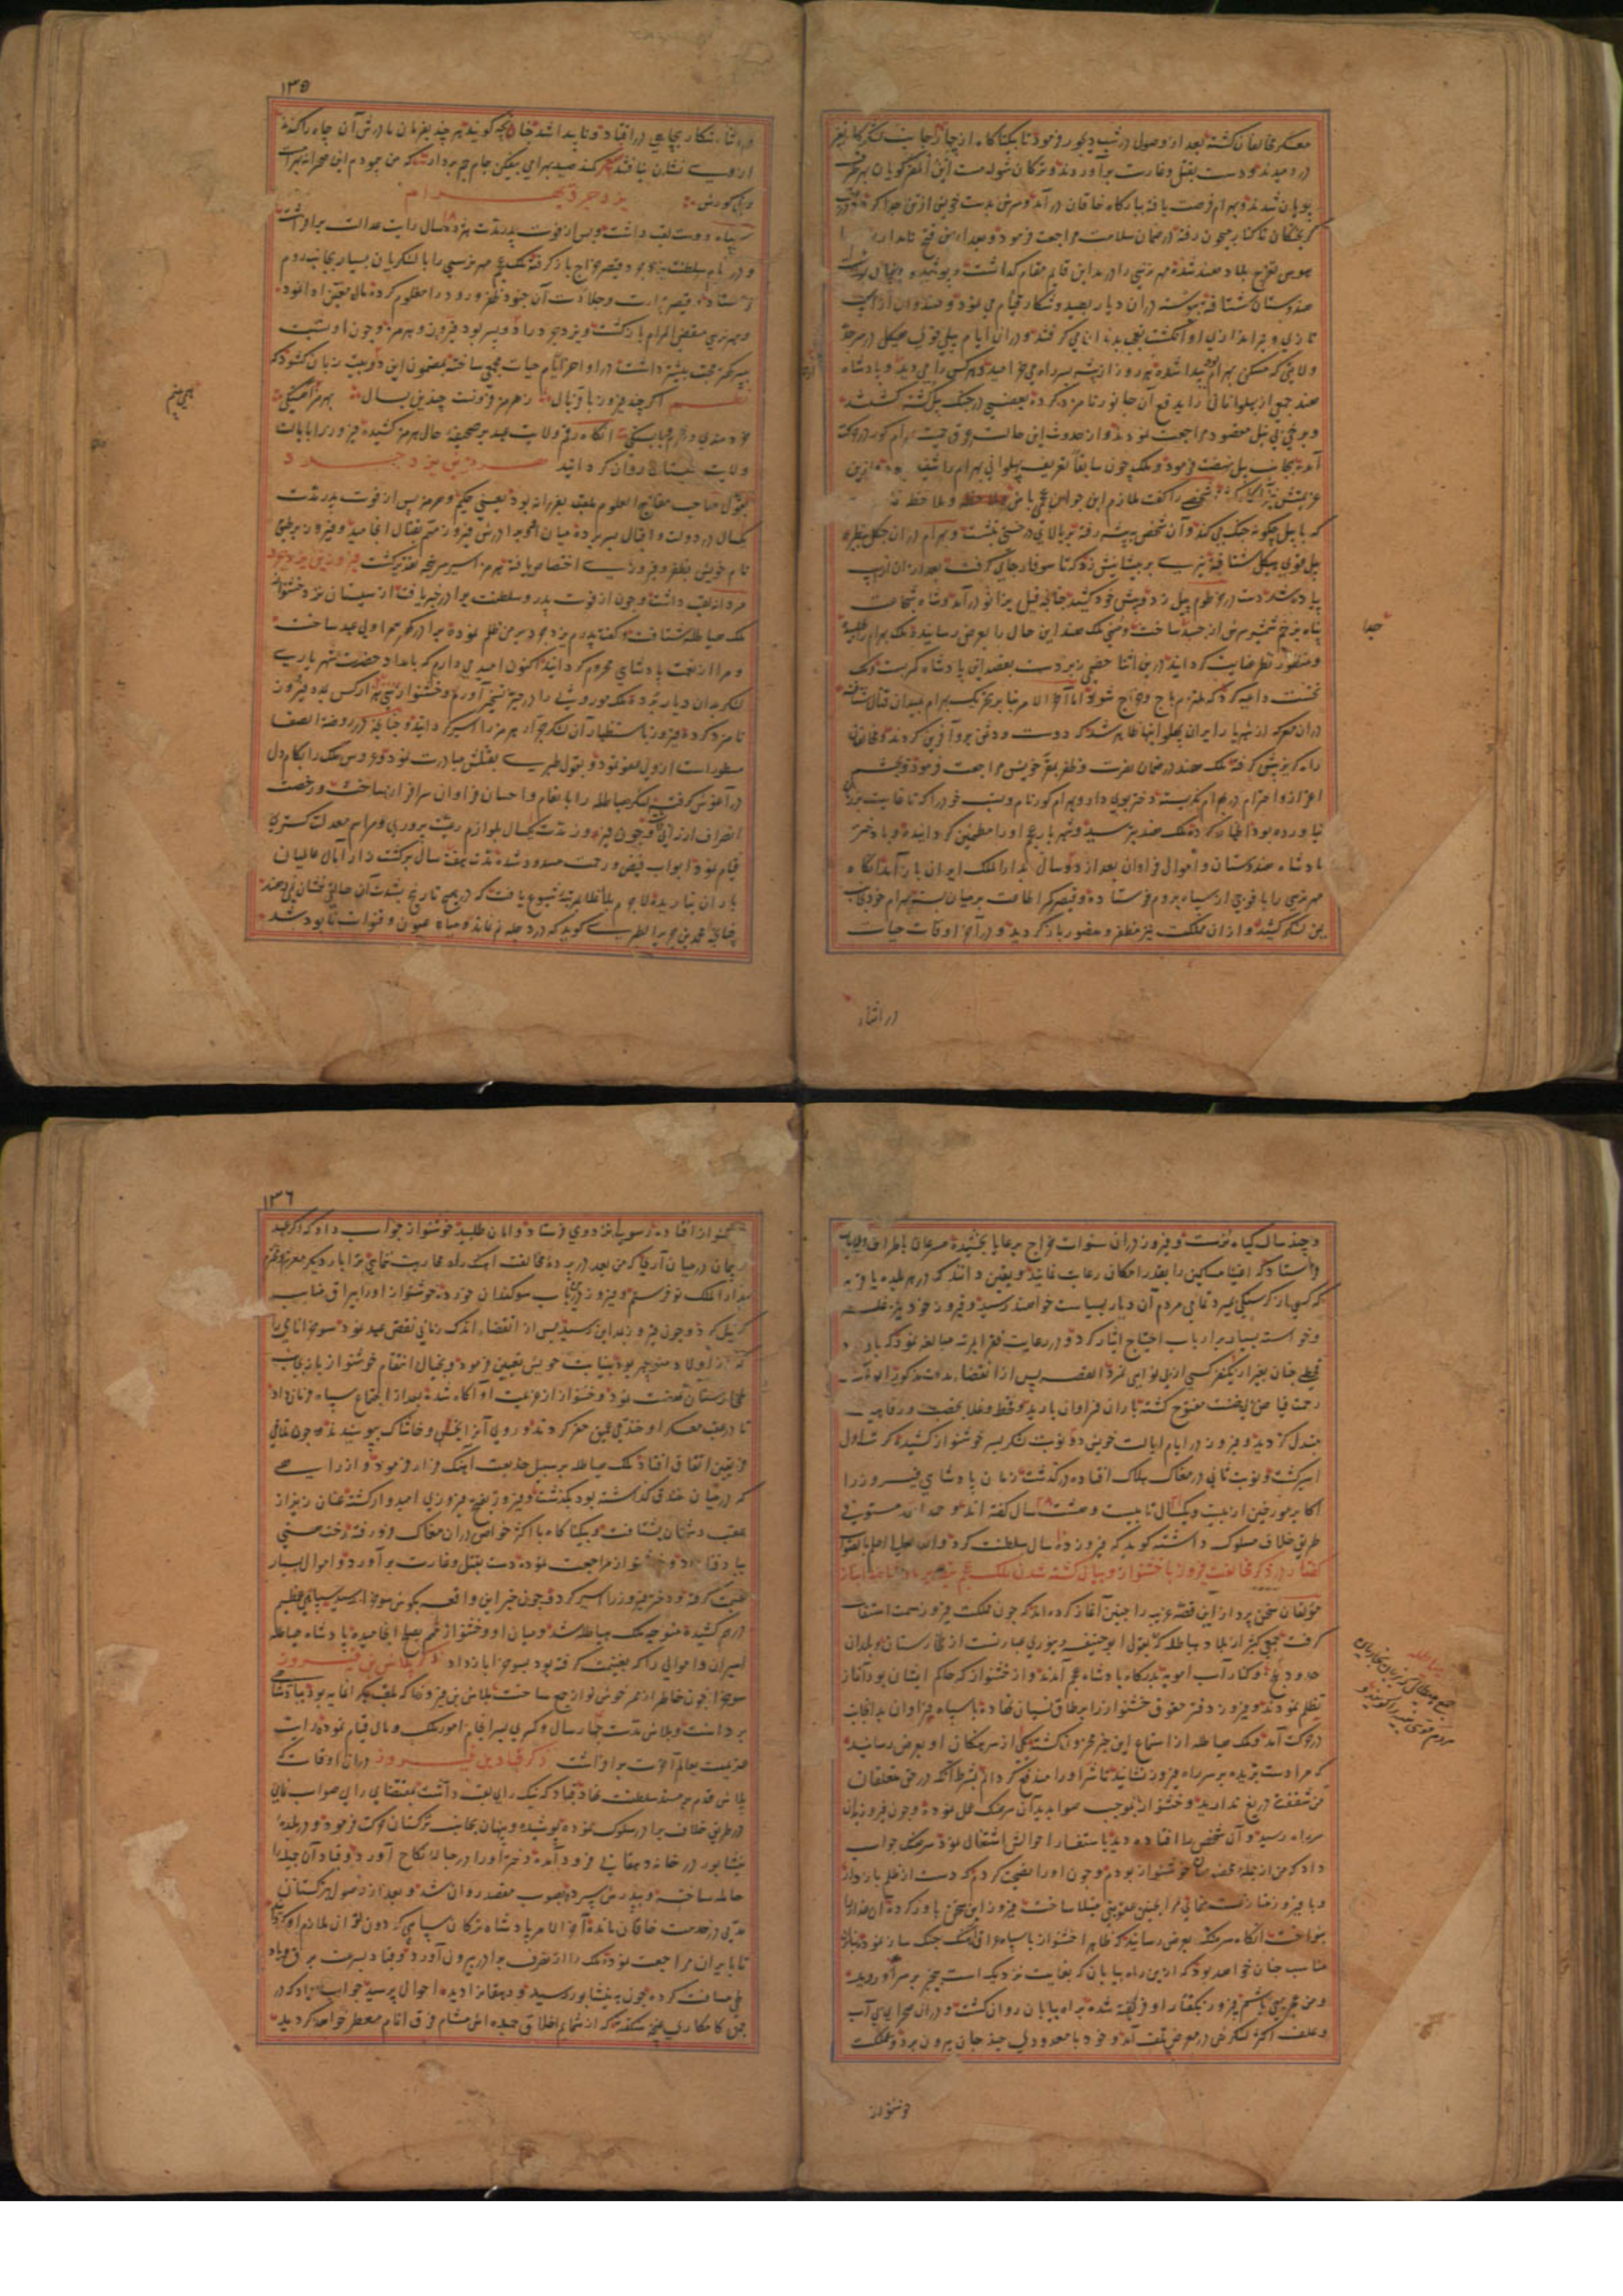 معسکر مخالفان کشته بعد از وصول در شب دیجور فرمود تا بیکبار کاه از چار جانب لشکر کاه نفیر
در دمیدند و دست بقتل و غارت برآوردند و ترکان
پویان شدند و بهرام فرصت یافته ببارکاه خاقان درآمد و سرش بدست خویش از تن جدا کرد
کریختکان تا کنار جیحون رفته در ضمان سلامت مراجعت فرمود و بعد از این فتح نامدار
هوس تفرج بلاد هند شده مهر نرسی را در مداین قایم مقام کذاشت و پوشیده و پنهان
هندوستان شتافته پیوسته در آن دیار بصید و شکار قیام می نمود و هندوان از آن
تازی و تیراندازی او انکشت تعجب بدندان می کرفتند و در آن ایام پیلی قوی هیکل در سرحد
ولایتی که مسکن بهرام بود پیدا شده هر روز از بیشه بسر راه می خرامید و هر کس را می دید
هند جمعی از پهلوانان را بدفع آن جانور نامزد کرده بعضی در جنک پیل کشته کشتند
و برخی بی نیل مقصود مراجعت نمودند و از حدوث این حالت عرق حمیت بهرام کور در حرکت
آمده بجانب پیل نهضت فرمود و ملک چون سابقا تعریف پهلوانی بهرام را شنیده
شخصی را کفت ملازم این جوان عجمی باش و ملاحظه
که با پیل چکونه جنک می کند و آن شخص به بیشه رفته بر بالای درختی نشست و بهرام در آن جنکل
پیل قوی هیکل شتافته تیری بر پیشانیش زد که تا سوفار جای کرفت بعد از آن از اسب
پیاده شد دست در خرطوم پیل زد و پیش خود کشید چنانچه فیل بزانو درآمد و شاه شجاعت
پناه بزخم شمشیر سرش از جسد جدا ساخت و منهی ملک هند این حال را بعرض رسانیده ملک بهرام را
و منظور نظر عنایت کردانید در این اثنا خصمی زبردست بقصد این پادشاه کمر بست و ملک
نخست داعیه کرد که ملتزم باج و خراج شود اما آخر الامر بنا بر تحریک بهرام بمیدان قتال شتافته
در آن معرکه از شهریار ایران پهلوانیها ظاهر شد که دوست و دشمن برو آفرین کردند و مخالفان
راه کریز پیش کرفته ملک هند در ضمان نصرت و ظفر بمقر خویش مراجعت فرمود و بچشم
اعزاز و احترام در بهرام نکریسته دختر بوی داد و بهرام کور نام و نسب خود را که تا غایت بر زبان
نیاورده بود اظهار کرد ملک هند بترسید و شهریار عجم او را مطمئن کردانیده و با دختر
پادشاه هندوستان و اموال فراوان بعد از دو سال بدار الملک ایران باز آمد آنکاه
مهر نرسی را با فوجی از سپاه بروم فرستاده و قیصر کمر اطاعت بر میان بست و بهرام خود بجانب
یمن لشکر کشید و از آن مملکت نیز مظفر و منصور باز کردید و در آخر اوقات حیات
جدا
در اثناء
۱۳۵
در اثناء شکار بچاهی در افتاد و ناپیدا شد چنانچه کویند هر چند بفرمان مادرش آن چاه را کندند
از وی نشان نیافتند شعر کمند صید بهرامی بیفکن جام جم بردار که من پیمودم این صحرا نه بهرام است
و نی کورش
یزدجرد بن بهرام
سپاه دوست لقب داشت و پس از فوت پدر مدت هژده ۱۸ سال رایت عدالت برافراشت
و در ایام سلطنت یزدجرد قیصر خراج باز کرفته ملک عجم مهر نرسی را با لشکریان بسیار بجانب روم
فرستاد و قیصر جلادت آن جنود ظفر ورود را معلوم کرده مال معین ادا نمود
و مهر نرسی مقضی المرام باز کشت و یزدجرد را دو پسر بود فیروز و هرمز و چون او نسبت
بپسر کهتر محبت بیشتر داشت در اواخر ایام حیات بمضمون این دو بیت زبان کشود که
نظم اکرچه فیروز با فر و یال ز هرمز فزونست چندین بسال بهرمز
خردمندی و شرم و شایستکی آنکاه رقم ولایت عهد بر صحیفه حال هرمز کشید و فیروز را بایالت
ولایت سیستان روان کردانید هرمز بن یزدجرد
بقول صاحب مفاتیح العلوم ملقب بفرزانه بود یعنی حکیم و هرمز پس از فوت پدر مدت
یکسال در دولت و اقبال بسر برده میان او و برادرش فیروز مهم بقتال انجامید و فیروز بر طبق
نام خویش بظفر و فیروزی اختصاص یافته هرمز اسیر سرپنجه تقدیر کشت فیروز بن یزدجرد
مردانه لقب داشت و چون از فوت پدر و سلطنت برادر خبر یافت از سیستان نزد خشنواز
ملک هیاطله شتافت و کفت پدرم یزدجرد بر من ظلم نموده برادر کوچکم را ولی عهد ساخت
و مرا از نعمت پادشاهی محروم کردانید اکنون امید می دارم که بامداد حضرت شهریاری
لشکر بدان دیار برده ملک موروثی را در حیز تسخیر آورم و خشنواز سی هزار کس بمدد فیروز
نامزد کرد و فیروز باستظهار آن لشکر جرار هرمز را اسیر کردانید و چنانچه در روضة الصفا
مسطور است از وی عفو نمود و بقول طبری بقتلش مبادرت نمود و عروس ملک را بکام دل
در آغوش کرفت و لشکر هیاطله را بانعام و احسان فراوان سرافراز ساخت و رخصت
انصراف ارزانی داشت و چون فیروز مدت یکسال بلوازم رعیت پروری و مراسم معدلت کستری
قیام نمود ابواب فیض و رحمت مسدود شده مدت هفت سال برکشت زار آمال عالمیان
باران نبارید و لاجرم بلا و غلا بمرتبه شیوع یافت که در هیچ تاریخ بشدت آن حال نشان نمی دهند
چنانچه محمد بن جریر الطبری کوید که در دجله نم نماند و میاه عیون و قنوات نابود شد
و چند سال کیاه نرست و فیروز در آن سنوات خراج برعایا بخشیده مسرعان باطراف ولایات
فرستاد که اغنیا مساکین را بقدر امکان رعایت نمایند و یقین دانند که در هر بلده یا قریه
که کسی از کرسنکی میرد تمامی مردم آن دیار بسیاست خواهند رسید و فیروز خود نیز غله
و خواسته بسیار بر ارباب احتیاج ایثار کرد و در رعایت فقرا بمرتبه مبالغه نمود که با وجود
قحطی چنان بغیر از یکنفر کسی از بی نوایی نمرد القصه پس از انقضاء مدت مذکوره ابواب
رحمت فیاض بی منت مفتوح کشته باران فراوان بارید و قحط و غلا بخصب و رفاهیت
مبدل کردید و فیروز در ایام ایالت خویش دو نوبت لشکر بر سر خوشنواز کشیده کرت اول
اسیر کشت و نوبت ثانی در مغاک هلاک افتاده در کذشت زمان پادشاهی فیروز را
اکابر مورخین از بیست و یکسال تا بیست و هشت ۲۸ سال کفته اند و حمد الله مستوفی
طریق خلاف مسلوک داشته کوید که فیروز ده سال سلطنت کرد و الله تعالی اعلم بالصواب
کفتار در ذکر مخالفت فیروز با خشنواز و بیان کشته شدن ملک عجم
مولفان سخن پرداز این قصه غریب را چنین آغاز کرده اند که چون مملکت فیروز سمت استقامت
کرفت جمعی کثیر از بلاد هیاطله که بقول ابو حنیفه دینوری عبارتست از طخارستان و بلدان
حدود بلخ و کنار آب امویه بدرکاه پادشاه عجم آمدند و از خشنواز که حاکم ایشان بود آغاز
تظلم نمودند و فیروز دفتر حقوق خشنواز را بر طاق نسیان نهاده با سپاه فراوان بدانجانب
در حرکت آمد و ملک هیاطله از استماع این خبر محزون کشته یکی از سرهنکان او بعرض رسانید
که مرا دست بریده بر سر راه فیروز نشانید تا شر او را مندفع کردانم بشرط آنکه در حق متعلقان
من شفقت دریغ ندارید و خشنواز بموجب صوابدید آن سرهنک عمل نموده و چون فیروز بآن
سر راه رسید و آن شخص را افتاده دید باستفسار احوالش اشتغال نمود سرهنک جواب
داد که من از جمله مخصوصان خوشنواز بودم و چون او را نصیحت کردم که دست از ظلم بازدار
و با فیروز مخالفت منمای مرا بچنین عقوبتی مبتلا ساخت فیروز این سخن باور کرده آن غدار را
بنواخت آنکاه سرهنک بعرض رسانید که ظاهرا خشنواز با سپاه فراوان آهنک جنک ساز نموده
مناسب چنان خواهد بود که از این راه بیابان که بغایت نزدیک است بی خبر بر سر او روید
و من نیز همراه باشم فیروز بکفتار او فریفته شده براه بیابان روان کشت و در آن صحرای بی آب
و علف اکثر لشکرش در معرض تلف آمد و خود با معدودی چند جان بیرون برد و بمملکت
خوشنواز
۱۳۶
خوشنواز افتاد و رسولی نزد وی فرستاد و امان طلبید خوشنواز جواب داد که اکر عهد
و پیمان در میان آری که من بعد در پرده مخالفت آهنک راه محاربت ننمایی ترا بار دیکر معزز و محترم
بدار الملک تو فرستم و فیروز در این باب سوکندان خورده خوشنواز او را بیراق مناسب
کسیل کرد و چون فیروز بمداین رسید پس از انقضاء اندک زمانی نقض عهد نمود سوخرا نامی را
که از اولاد منوچهر بود بنیابت خویش تعیین فرمود و بخیال انتقام خوشنواز باز بجانب
طخارستان نهضت نمود و خشنواز از عزیمت او آکاه شده بعد از اجتماع سپاه فرمان داد
تا در عقب معسکر او خندقی عمیق حفر کردند و روی آنرا بخس و خاشاک بپوشیدند و چون تلاقی
فریقین اتفاق افتاد ملک هیاطله بر سبیل خدیعت آهنک فرار فرمود و از راهی
که در میان خندق کذاشته بود بکذشت و فیروز بفتح و فیروزی امیدوار کشته عنان ریزان از
عقب دشمنان بشتافت و بیکبار کاه با اکثر خواص در آن مغاک فرو رفته رخت هستی
بباد فنا داد و خوشنواز مراجعت نموده دست بقتل و غارت برآورد و اموال بسیار
غنیمت کرفته و دختر فیروز را اسیر کرد و چون خبر این واقعه بکوش سوخرا رسید سپاهی عظیم
درهم کشیده متوجه ملک هیاطله شد و میان او و خشنواز مهم بصلح انجامیده پادشاه هیاطله
اسیران و اموالی را که بغنیمت کرفته بود بسوخرا باز داد ذکر بلاش بن فیروز
سوخرا چون خاطر از ممر خوشنواز جمع ساخت بلاش بن فیروز را که ملقب بکرانمایه بود بپادشاهی
برداشت و بلاش مدت چهار سال و کسری بسرانجام امور ملک و مال قیام نموده رایت
عزیمت بعالم آخرت برافراشت ذکر قباد بن فیروز در آن اوقات که
بلاش قدم بر مسند سلطنت نهاد قباد که نیک رای لقب داشت بمقتضای رای صواب نمای
در طریق خلاف برادر سلوک نموده پوشیده و پنهان بجانب ترکستان حرکت فرمود و در بلده
نیشابور در خانه دهقانی فرود آمده دختر او را در حباله نکاح آورد و قباد آن جمیله را
حامله ساخته و بپدرش سپرده بصوب مقصد روان شد و بعد از وصول بترکستان
مدتی در خدمت خاقان مانده آخر الامر پادشاه ترکان سپاهی کردون توان ملازم او کردانید
تا بایران مراجعت نموده ملک را از تصرف برادر بیرون آورد و قباد بسرعت برق و باد
طی مسافت کرده چون به نیشابور رسید و دهقانزا دیده احوال پرسید جواب داد که در
چمن کامکاری غنچه شکفته که از شمایم اخلاق حمیده اش مشام فرق انام معطر خواهد کردید